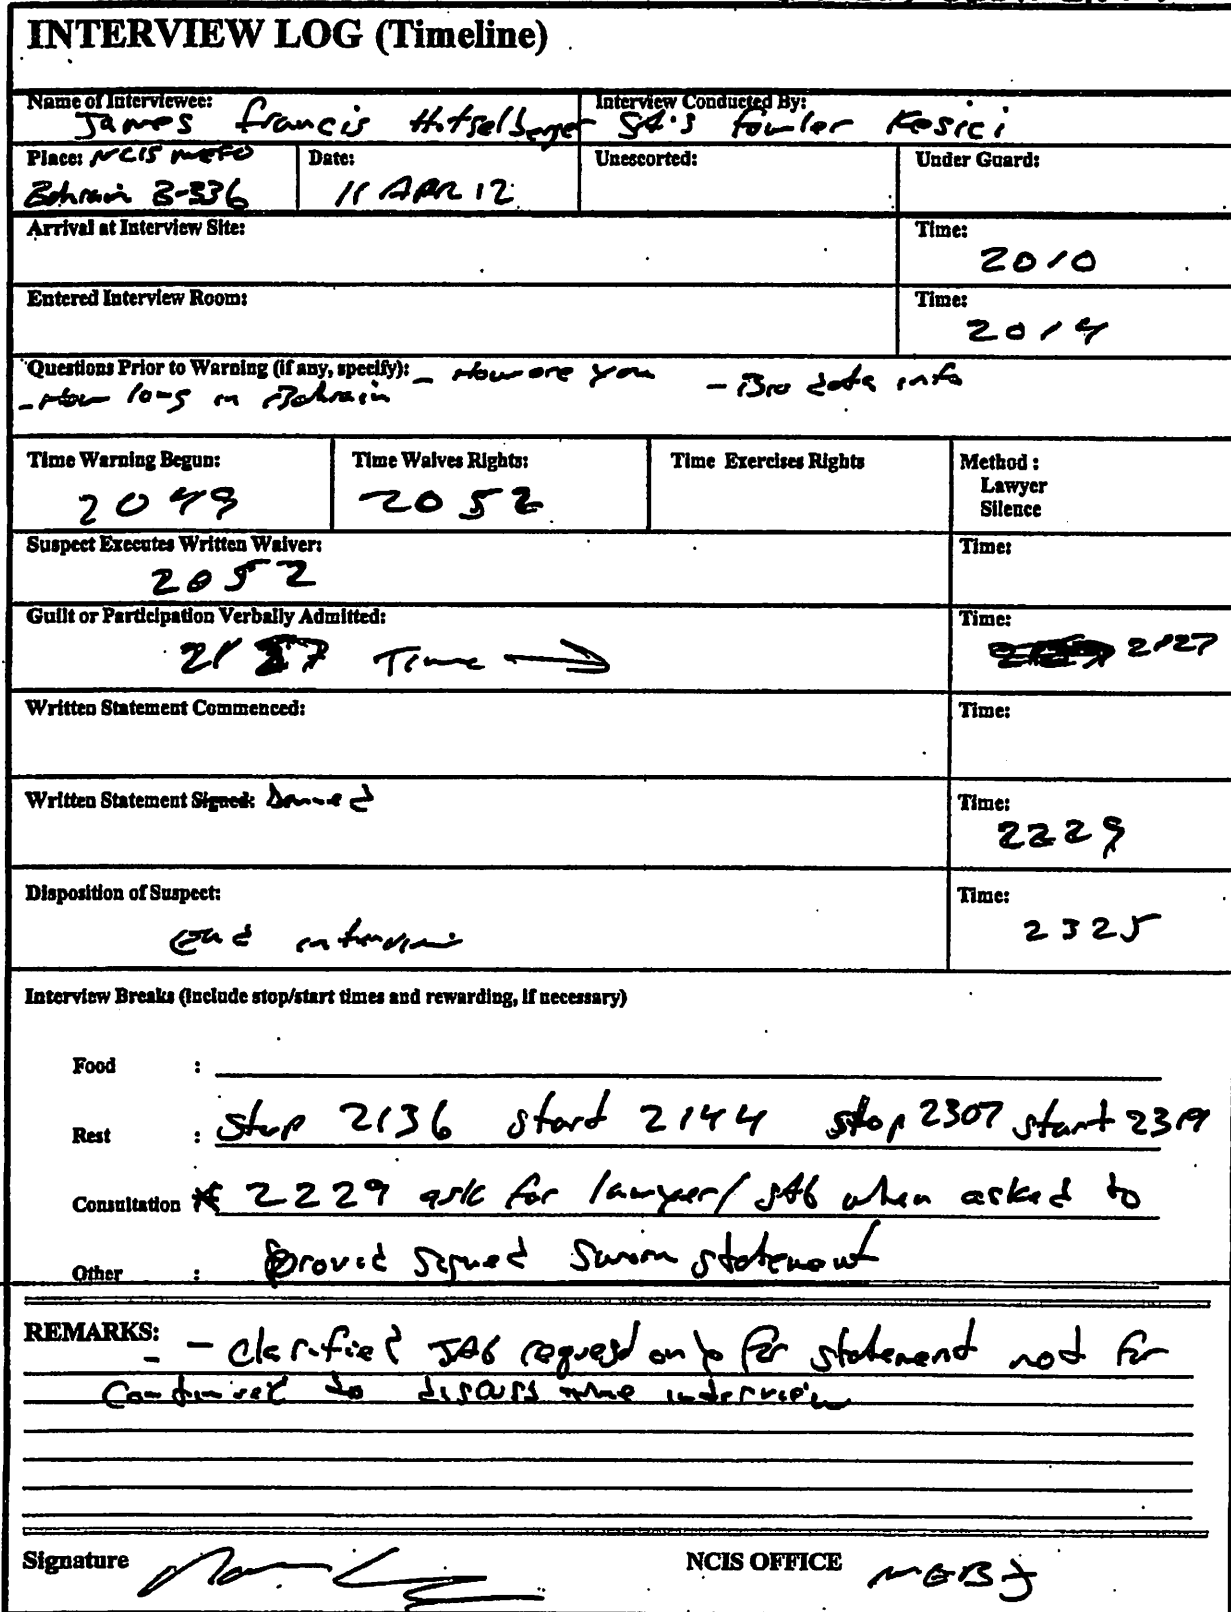 INTERVIEW LOG (Timeline)
Name of Interviewee: James Francis Hitselberger
Interview Conducted By: SA's Fowler Kesici
Place: NCIS MEFO Bahrain B-336
Date: 11 APR 12
Unescorted:
Under Guard:
Arrival at Interview Site:
Time: 2010
Entered Interview Room:
Time: 2014
Questions Prior to Warning (if any, specify): - How are you - Bio data info
- How long in Bahrain
Time Warning Begun: 2049
Time Waives Rights: 2052
Time Exercises Rights
Method :
Lawyer
Silence
Suspect Executes Written Waiver: 2052
Time:
Guilt or Participation Verbally Admitted: 2127 Time →
Time: 2127
Written Statement Commenced:
Time:
Written Statement Signed: Denied
Time: 2229
Disposition of Suspect: End interview
Time: 2325
Interview Breaks (Include stop/start times and rewarding, if necessary)
Food :
Rest : Stop 2136 start 2144 stop 2307 start 2319
Consultation * 2229 ask for lawyer/JAG when asked to
Other : provid signed sworn statement
REMARKS: - Clarified JAG request only for statement not for
discuss interview
Signature
NCIS OFFICE MEBJ